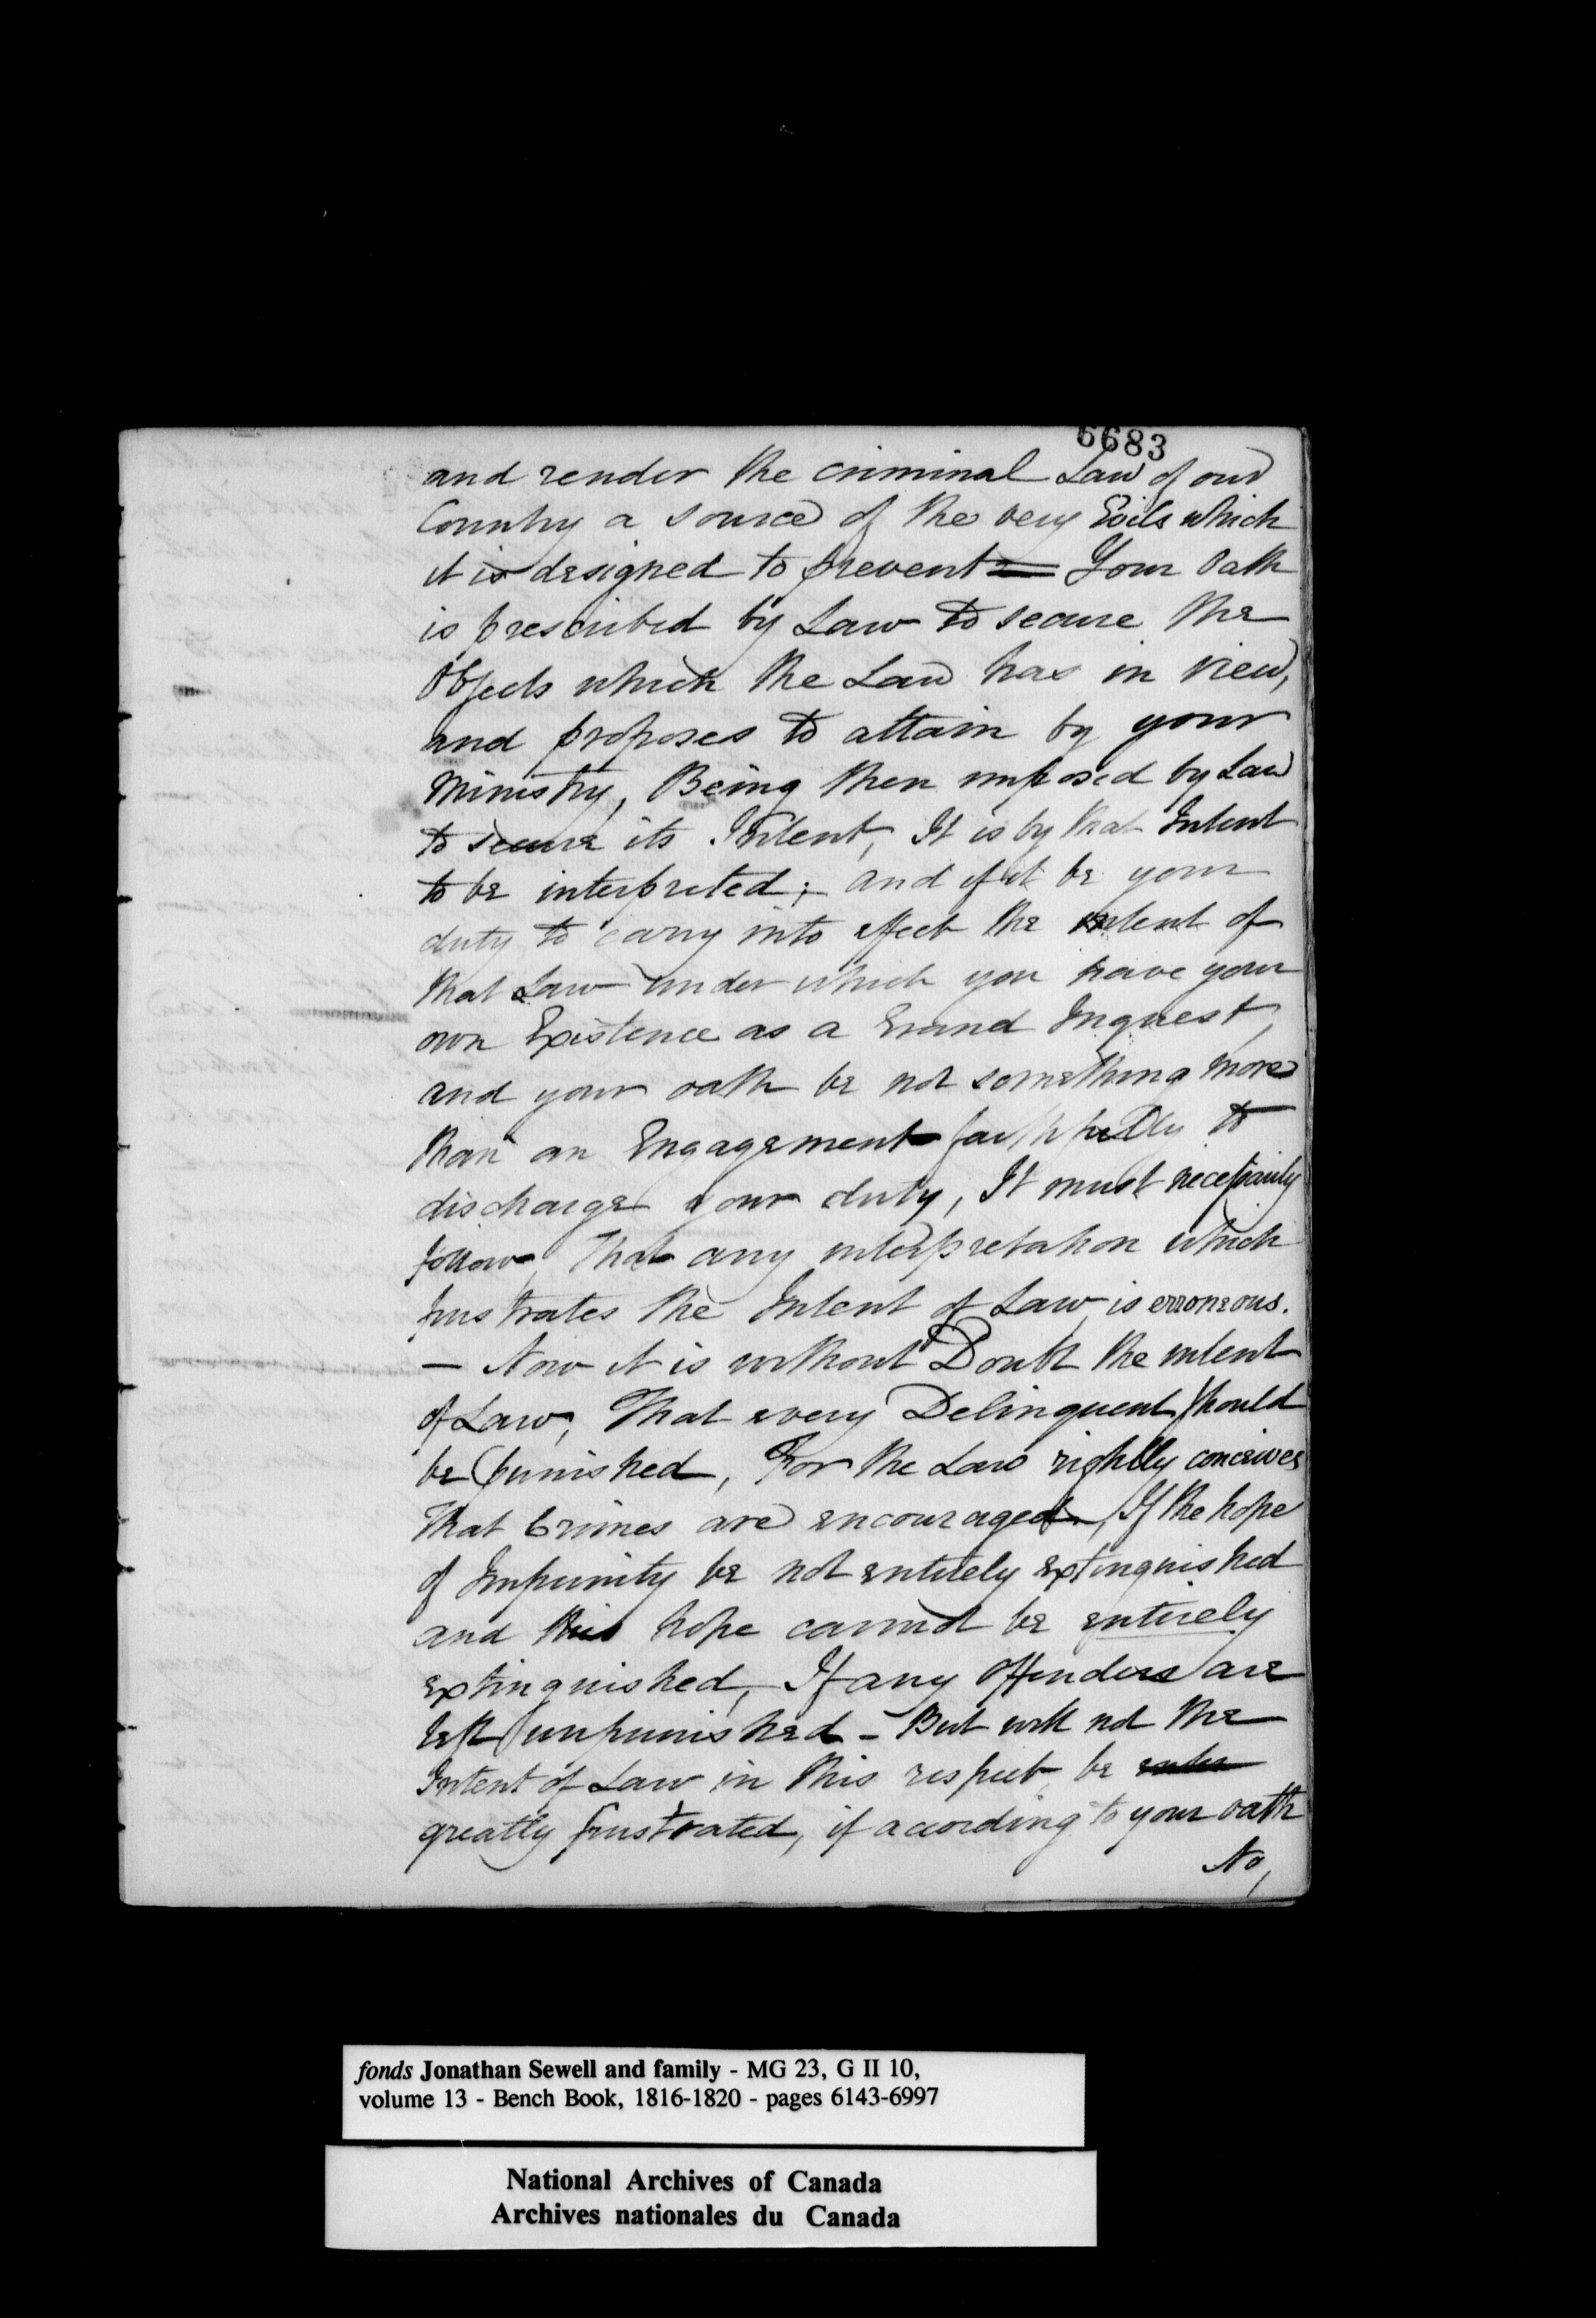 6683
and render the criminal Law of our
Country a source of the very Evils which
it is designed to prevent — Your Oath
is prescribed by Law to secure the
Objects which the Law has in view,
and proposes to attain by your
Ministry, Being then imposed by Law
to secure its Intent, It is by that Intent
to be interpreted; and if it be your
duty to carry into effect the intent of
that Law under which you have your
own Existence as a Grand Inquest,
and your oath be not something more
than an Engagement faithfully to
discharge your duty, It must necessarily
follow, That any interpretation which
frustrates the Intent of Law, is erroneous.
— Now it is without Doubt the intent
of Law, That every Delinquent should
be punished, For the Law rightly conceives
That Crimes are encouraged, If the hope
of Impunity be not entirely extinguished
and this hope cannot be entirely
extinguished, If any Offenders are
left unpunished – But will not the
Intent of Law in this respect, be
greatly frustrated, if according to your oath
No,
fonds Jonathan Sewell and family - MG 23, G II 10,
volume 13 - Bench Book, 1816-1820 - pages 6143-6997
National Archives of Canada
Archives nationales du Canada